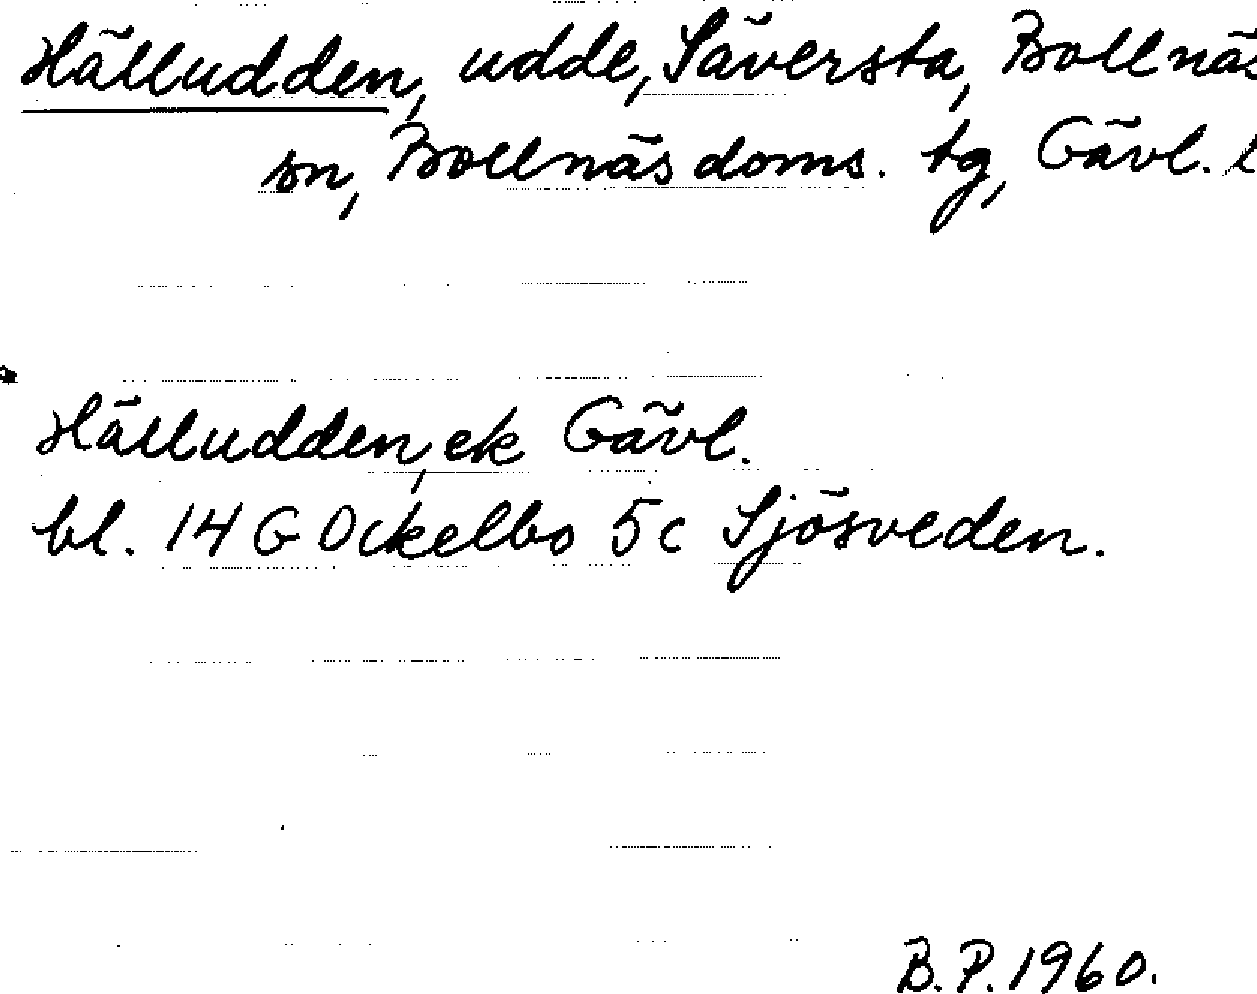 Hälludden, udde, Säversta, Bollnäs
sn, Bollnäs doms. tg, Gävl. l
Hälludden, ek Gävl.
bl. 14 G Ockelbo 5c Sjösveden.
B.P. 1960.